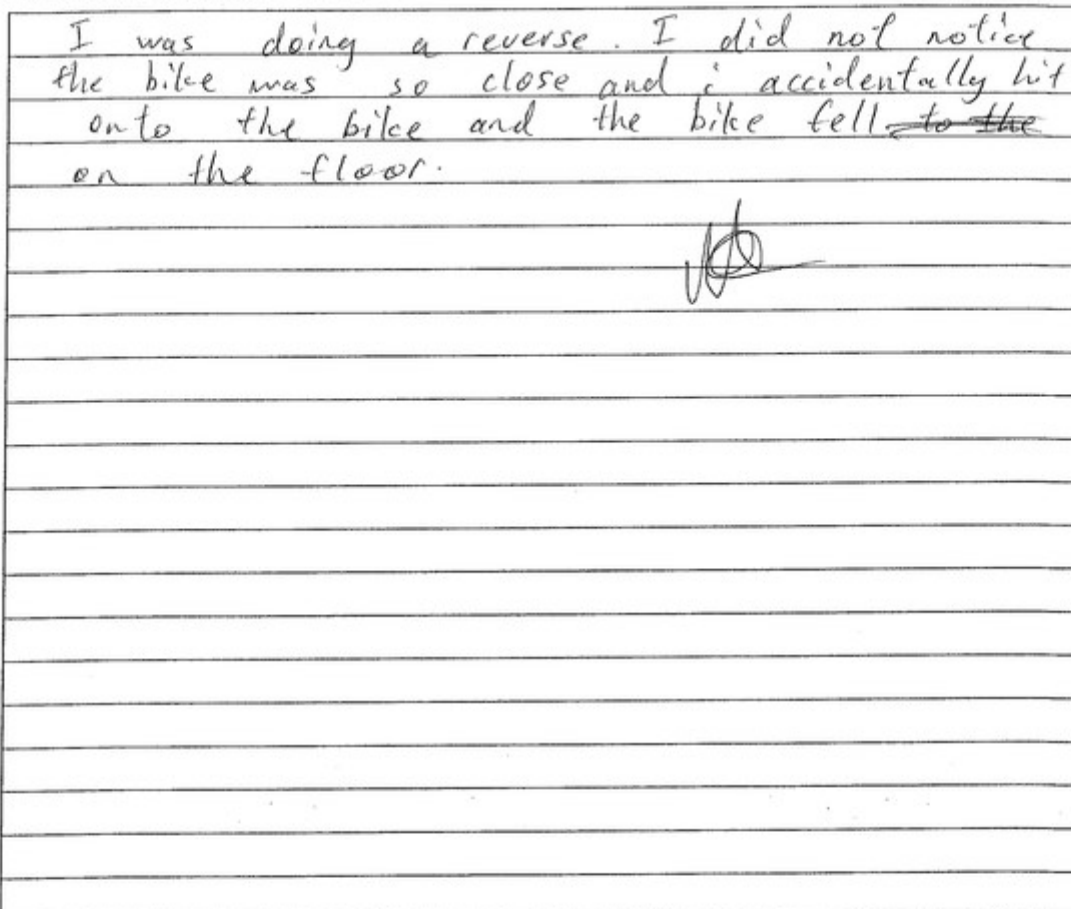 I was doing a reverse. I did not notice
the bike was so close and i accidentally hit
onto the bike and the bike fell to the
on the floor.